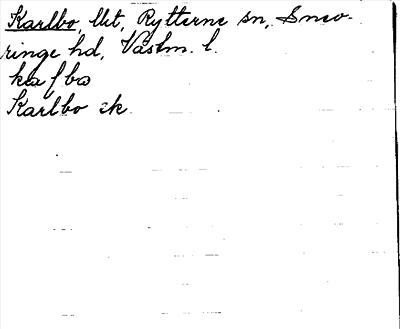 Karlbo, Utt, Rytterne sn, Snev-
ringe hd, Västm. l.
ka/bo
Karlbo ek